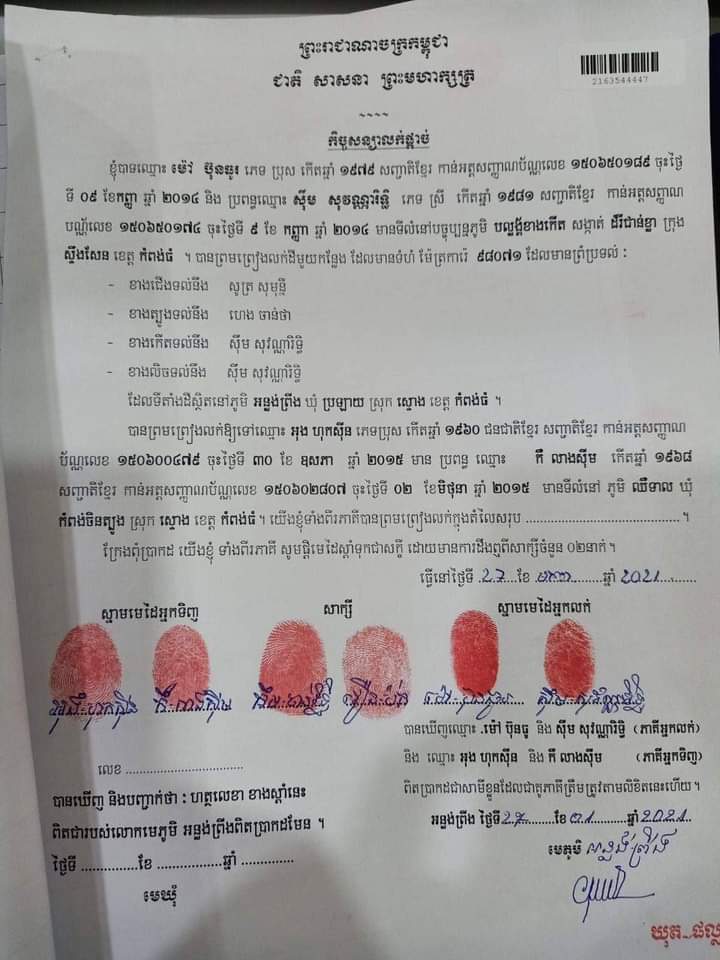 ព្រះរាជាណាចក្រកម្ពុជា
ជាតិ សាសនា ព្រះមហាក្សត្រ
2163544447
~~~~
កិច្ចសន្យាលក់ផ្តាច់
ខ្ញុំបាទឈ្មោះ ម៉ៅ ប៊ុនធូរ ភេទ ប្រុស កើតឆ្នាំ ១៩៧៩ សញ្ជាតិខ្មែរ កាន់អត្តសញ្ញាណប័ណ្ណលេខ ១៥០៦៥០១៨៩ ចុះថ្ងៃ
ទី ០៩ ខែកញ្ញា ឆ្នាំ ២០១៤ និង ប្រពន្ធឈ្មោះ ស៊ឹម សុវណ្ណារិទ្ធិ ភេទ ស្រី កើតឆ្នាំ ១៩៨១ សញ្ជាតិខ្មែរ កាន់អត្តសញ្ញាណ
បណ្ណ័លេខ ១៥០៦៥០១៧៤ ចុះថ្ងៃទី ៩ ខែ កញ្ញា ឆ្នាំ ២០១៤ មានទីលំនៅបច្ចុប្បន្នភូមិ បល្លង្គ័ខាងកើត សង្កាត់ ដំរីជាន់ខ្លា ក្រុង
ស្ទឹងសែន ខេត្ត កំពង់ធំ ។ បានព្រមព្រៀងលក់ដីមួយកន្លែង ដែលមានទំហំ ម៉ែត្រការ៉េ ៩៨០៧១ ដែលមានព្រំប្រទល់ :
- ខាងជើងទល់នឹង សូត្រ សុមុន្នី
- ខាងត្បូងទល់នឹង ហេង ចាន់ថា
- ខាងកើតទល់នឹង ស៊ឹម សុវណ្ណារិទ្ធិ
- ខាងលិចទល់នឹង ស៊ឹម សុវណ្ណារិទ្ធិ
ដែលទីតាំងដីស្ថិតនៅភូមិ អន្លង់ព្រីង ឃុំ ប្រឡាយ ស្រុក ស្ទោង ខេត្ត កំពង់ធំ ។
បានព្រមព្រៀងលក់ឱ្យទៅឈ្មោះ អុង ហុកស៊ីន ភេទប្រុស កើតឆ្នាំ ១៩៦០ ជនជាតិខ្មែរ សញ្ជាតិខ្មែរ កាន់អត្តសញ្ញាណ
ប័ណ្ណលេខ ១៥០៦០០៤៧៩ ចុះថ្ងៃទី ៣០ ខែ ឧសភា ឆ្នាំ ២០១៥ មាន ប្រពន្ធ ឈ្មោះ កី លាងស៊ីម កើតឆ្នាំ ១៩៦៨
សញ្ជាតិខ្មែរ កាន់អត្តសញ្ញាណប័ណ្ណលេខ ១៥០៦០២៨០៧ ចុះថ្ងៃទី ០២ ខែមិថុនា ឆ្នាំ ២០១៥ មានទីលំនៅ ភូមិ ឈីទាល ឃុំ
កំពង់ចិនត្បូង ស្រុក ស្ទោង ខេត្ត កំពង់ធំ។ យើងខ្ញុំទាំងពីរភាគីបានព្រមព្រៀងលក់ក្នុងតំលៃសរុប ........................................ ។
ក្រែងពុំប្រាកដ យើងខ្ញុំ ទាំងពីរភាគី សូមផ្តិមេដៃស្តាំទុកជាសក្ខី ដោយមានការដឹងឮពីសាក្សីចំនួន ០២នាក់។
ធ្វើនៅថ្ងៃទី 27 ខែ មករា ឆ្នាំ 2021
ស្នាមមេដៃអ្នកទិញ សាក្សី ស្នាមមេដៃអ្នកលក់
អុង ហុកស៊ីន កី លាងស៊ីម ស៊ឹម សុវណ្ណារិទ្ធិ
បានឃើញឈ្មោះ .ម៉ៅ ប៊ុនធូ និង ស៊ឹម សុវណ្ណារិទ្ធិ (ភាគីអ្នកលក់)
និង ឈ្មោះ អុង ហុកស៊ីន និង កី លាងស៊ីម (ភាគីអ្នកទិញ)
ពិតប្រាកដជាសាមីខ្លួនដែលជាគូភាគីត្រឹមត្រូវតាមលិខិតនេះហើយ។
អន្លង់ព្រីង ថ្ងៃទី 27 ខែ 01 ឆ្នាំ 2021
មេភូមិ អន្លង់ព្រីង
លេខ ..............................
បានឃើញ និងបញ្ជាក់ថា : ហត្ថលេខា ខាងស្តាំនេះ
ពិតជារបស់លោកមេភូមិ អន្លង់ព្រីងពិតប្រាកដមែន ។
ថ្ងៃទី ..............ខែ ................ឆ្នាំ ................
មេឃុំ